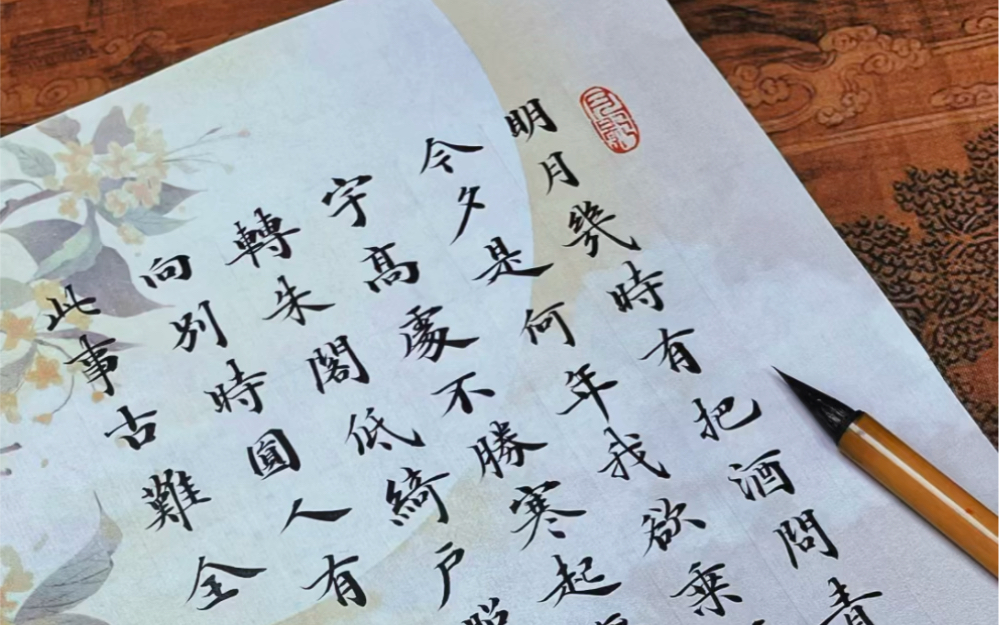 明月幾時有把酒問青
今夕是何年我欲乘
宇高處不勝寒起
轉朱閣低綺戶照
向別時圓人有
此事古難全